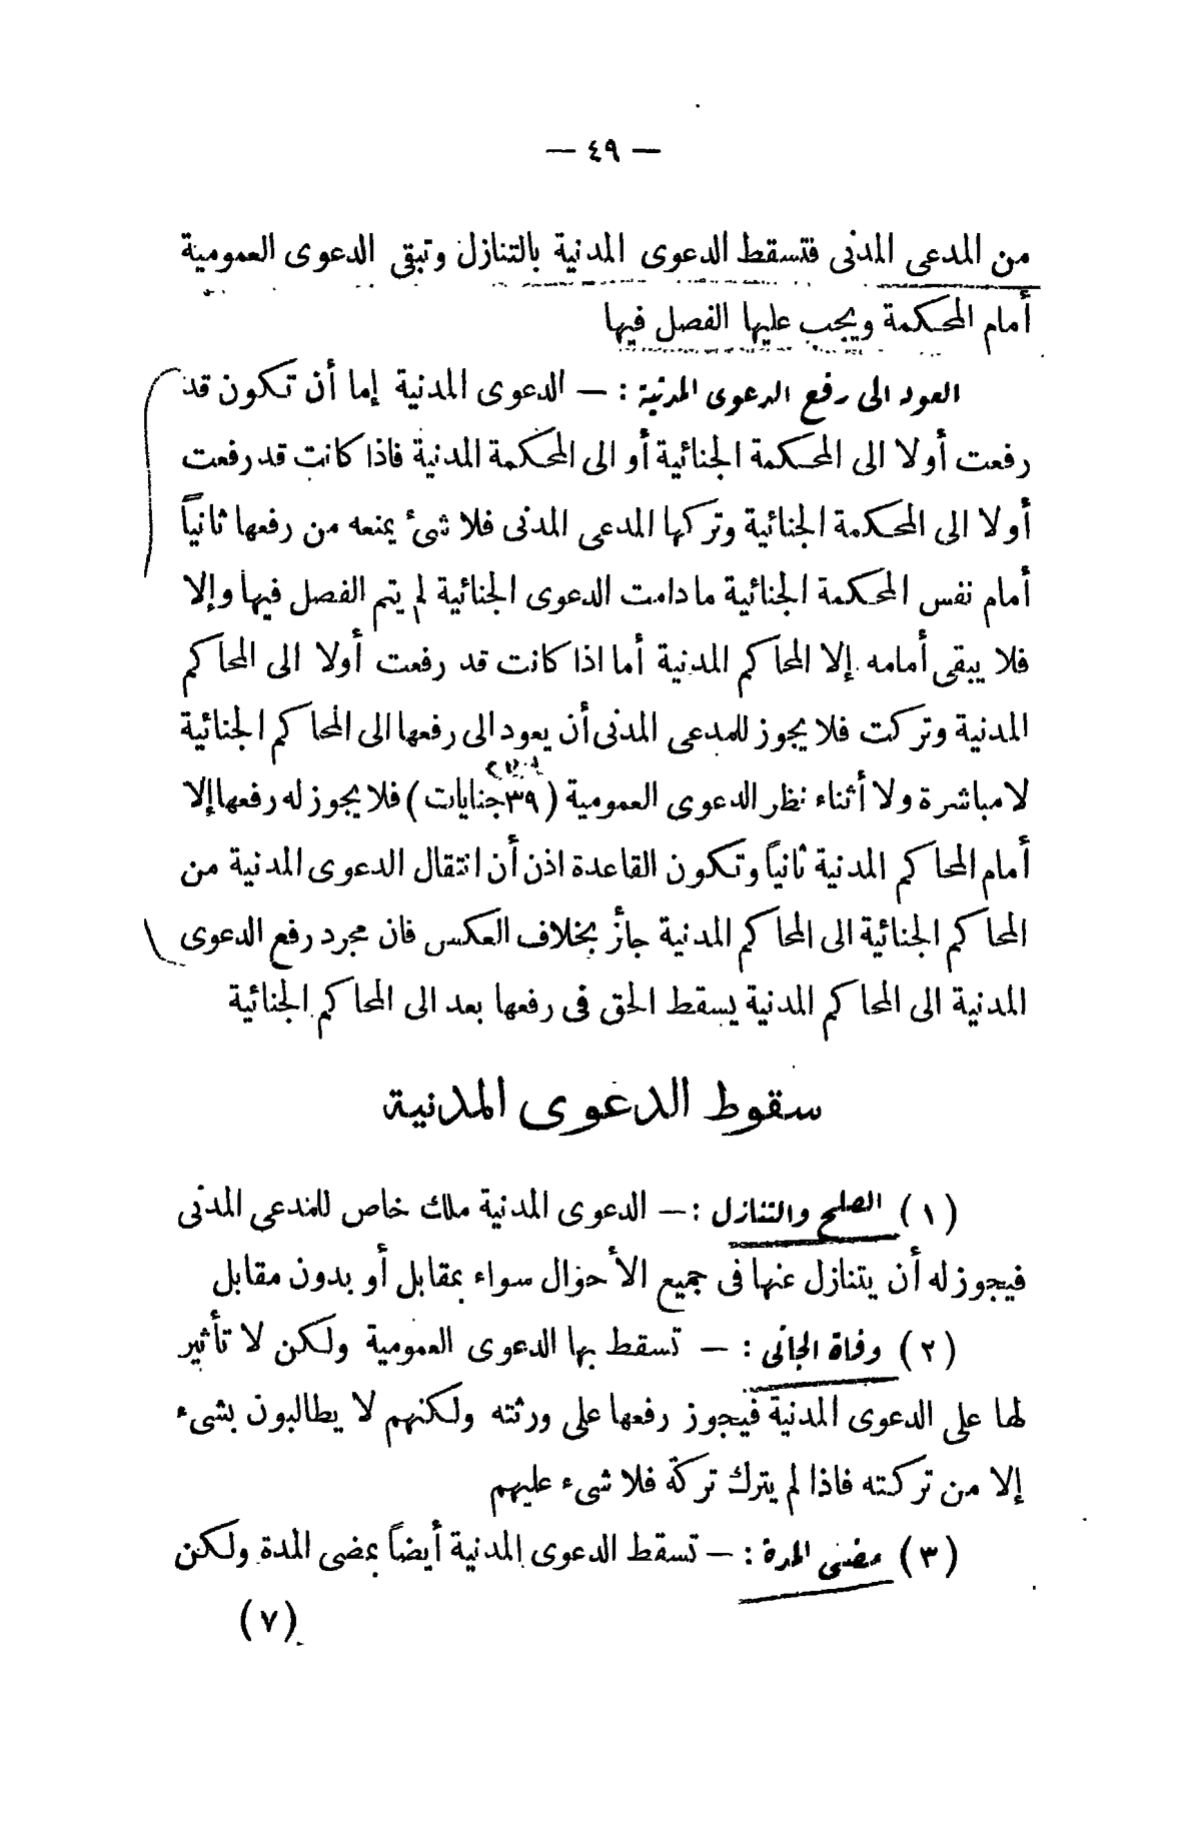 — ٤٩ —
من المدعى المدنى فتسقط الدعوى المدنية بالتنازل وتبقى الدعوى العمومية
أمام المحكمة ويجب عليها الفصل فيها
العود الى رفع الدعوى المدنية : — الدعوى المدنية إما أن تكون قد
رفعت أولا الى المحكمة الجنائية أو الى المحكمة المدنية فاذا كانت قد رفعت
أولا الى المحكمة الجنائية وتركها المدعى المدنى فلا شئ يمنعه من رفعها ثانياً
أمام نفس المحكمة الجنائية ما دامت الدعوى الجنائية لم يتم الفصل فيها وإلا
فلا يبقى أمامه إلا المحاكم المدنية أما اذا كانت قد رفعت أولا الى المحاكم
المدنية وتركت فلا يجوز للمدعى المدنى أن يعود الى رفعها الى المحاكم الجنائية
لا مباشرة ولا أثناء نظر الدعوى العمومية ( ٣٩ جنايات ) فلا يجوز له رفعها إلا
أمام المحاكم المدنية ثانياً وتكون القاعدة اذن أن انتقال الدعوى المدنية من
المحاكم الجنائية الى المحاكم المدنية جائز بخلاف العكس فان مجرد رفع الدعوى
المدنية الى المحاكم المدنية يسقط الحق فى رفعها بعد الى المحاكم الجنائية
سقوط الدعوى المدنية
( ١ ) الصلح والتنازل : — الدعوى المدنية ملك خاص للمدعى المدنى
فيجوز له أن يتنازل عنها فى جميع الأحوال سواء بمقابل أو بدون مقابل
( ٢ ) وفاة الجانى : — تسقط بها الدعوى العمومية ولكن لا تأثير
لها على الدعوى المدنية فيجوز رفعها على ورثته ولكنهم لا يطالبون بشىء
إلا من تركته فاذا لم يترك تركة فلا شىء عليهم
( ٣ ) مضى المدة : — تسقط الدعوى المدنية أيضاً بمضى المدة ولكن
( ٧ )